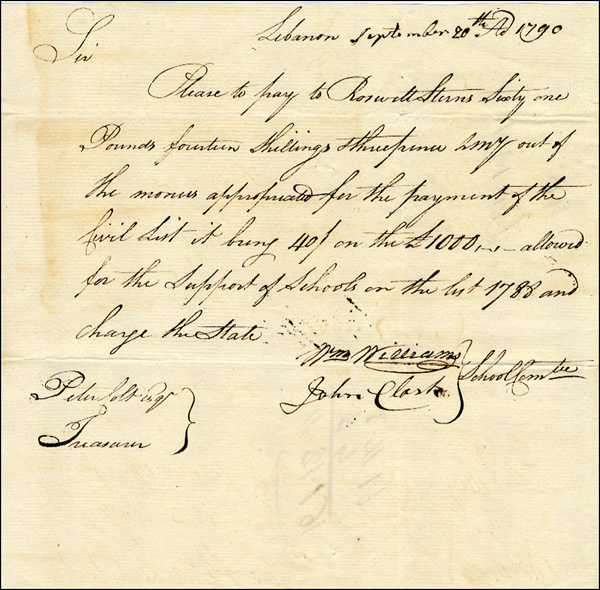 Lebanon September 20th AD 1790
Sir
Please to pay to Roswell Sterns Sixty one
Pounds fourteen Shillings & threepence LMy out of
the monies appropriated for the payment of the
Civil List it being 40/ on the £1000 allowed
for the Support of Schools on the list 1788 and
charge the State
Wm Williams
John Clark
School Comtee
Peter Colt Esqr
Treasurer